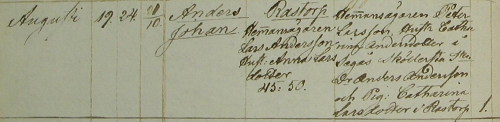 Augusti 19. 24. 20/10. Anders Johan
Rastorp
Hemansägaren
Lars Andersson
Hust: Anna Lars
dotter
45. 50.
Hemansägaren Peter
Larsson, Hust: Catha
rina Andersdotter i
Dr: Anders Andersson
och Pig: Catharina
Lars dotter i Rastorp
1.